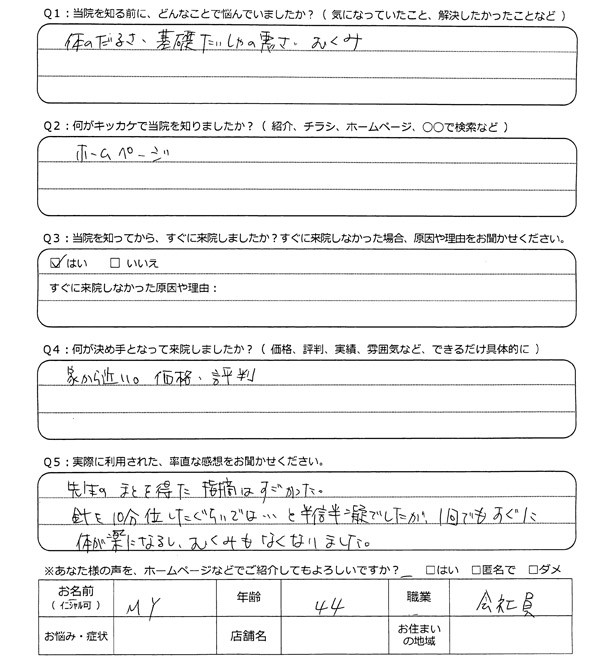 Q1：当院を知る前に、どんなことで悩んでいましたか？（ 気になっていたこと、解決したかったことなど ）
体のだるさ、基礎たいしゃの悪さ、むくみ
Q2：何がキッカケで当院を知りましたか？（ 紹介、チラシ、ホームページ、○○で検索など ）
ホームページ
Q3：当院を知ってから、すぐに来院しましたか？すぐに来院しなかった場合、原因や理由をお聞かせください。
☑はい □ いいえ
すぐに来院しなかった原因や理由：
Q4：何が決め手となって来院しましたか？（ 価格、評判、実績、雰囲気など、できるだけ具体的に ）
家から近い。価格、評判
Q5：実際に利用された、率直な感想をお聞かせください。
先生の まとを得た 指摘はすごかった。
針を10分位したぐらいでは…と半信半凝でしたが、1回でもすぐに
体が楽になるし、むくみもなくなりました。
※あなた様の声を、ホームページなどでご紹介してもよろしいですか？ □はい □匿名で □ダメ
お名前（イニシャル可） MY 年齢 44 職業 会社員
お悩み・症状 店舗名 お住まいの地域